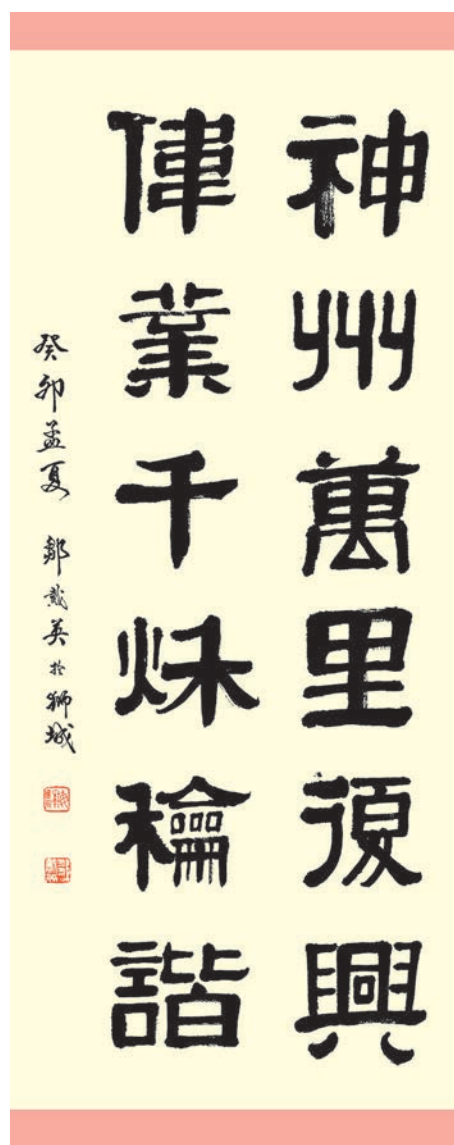 神州萬里復興
偉業千秌龢諧
癸卯孟夏 鄒戴英於獅城